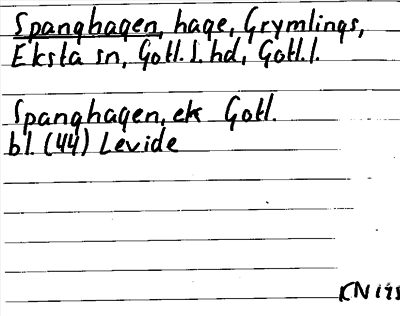 Spanghagen, hage, Grymlings,
Eksta sn, Gotl. s. hd, Gotl. l.
Spanghagen, ek Gotl.
bl. (44) Levide